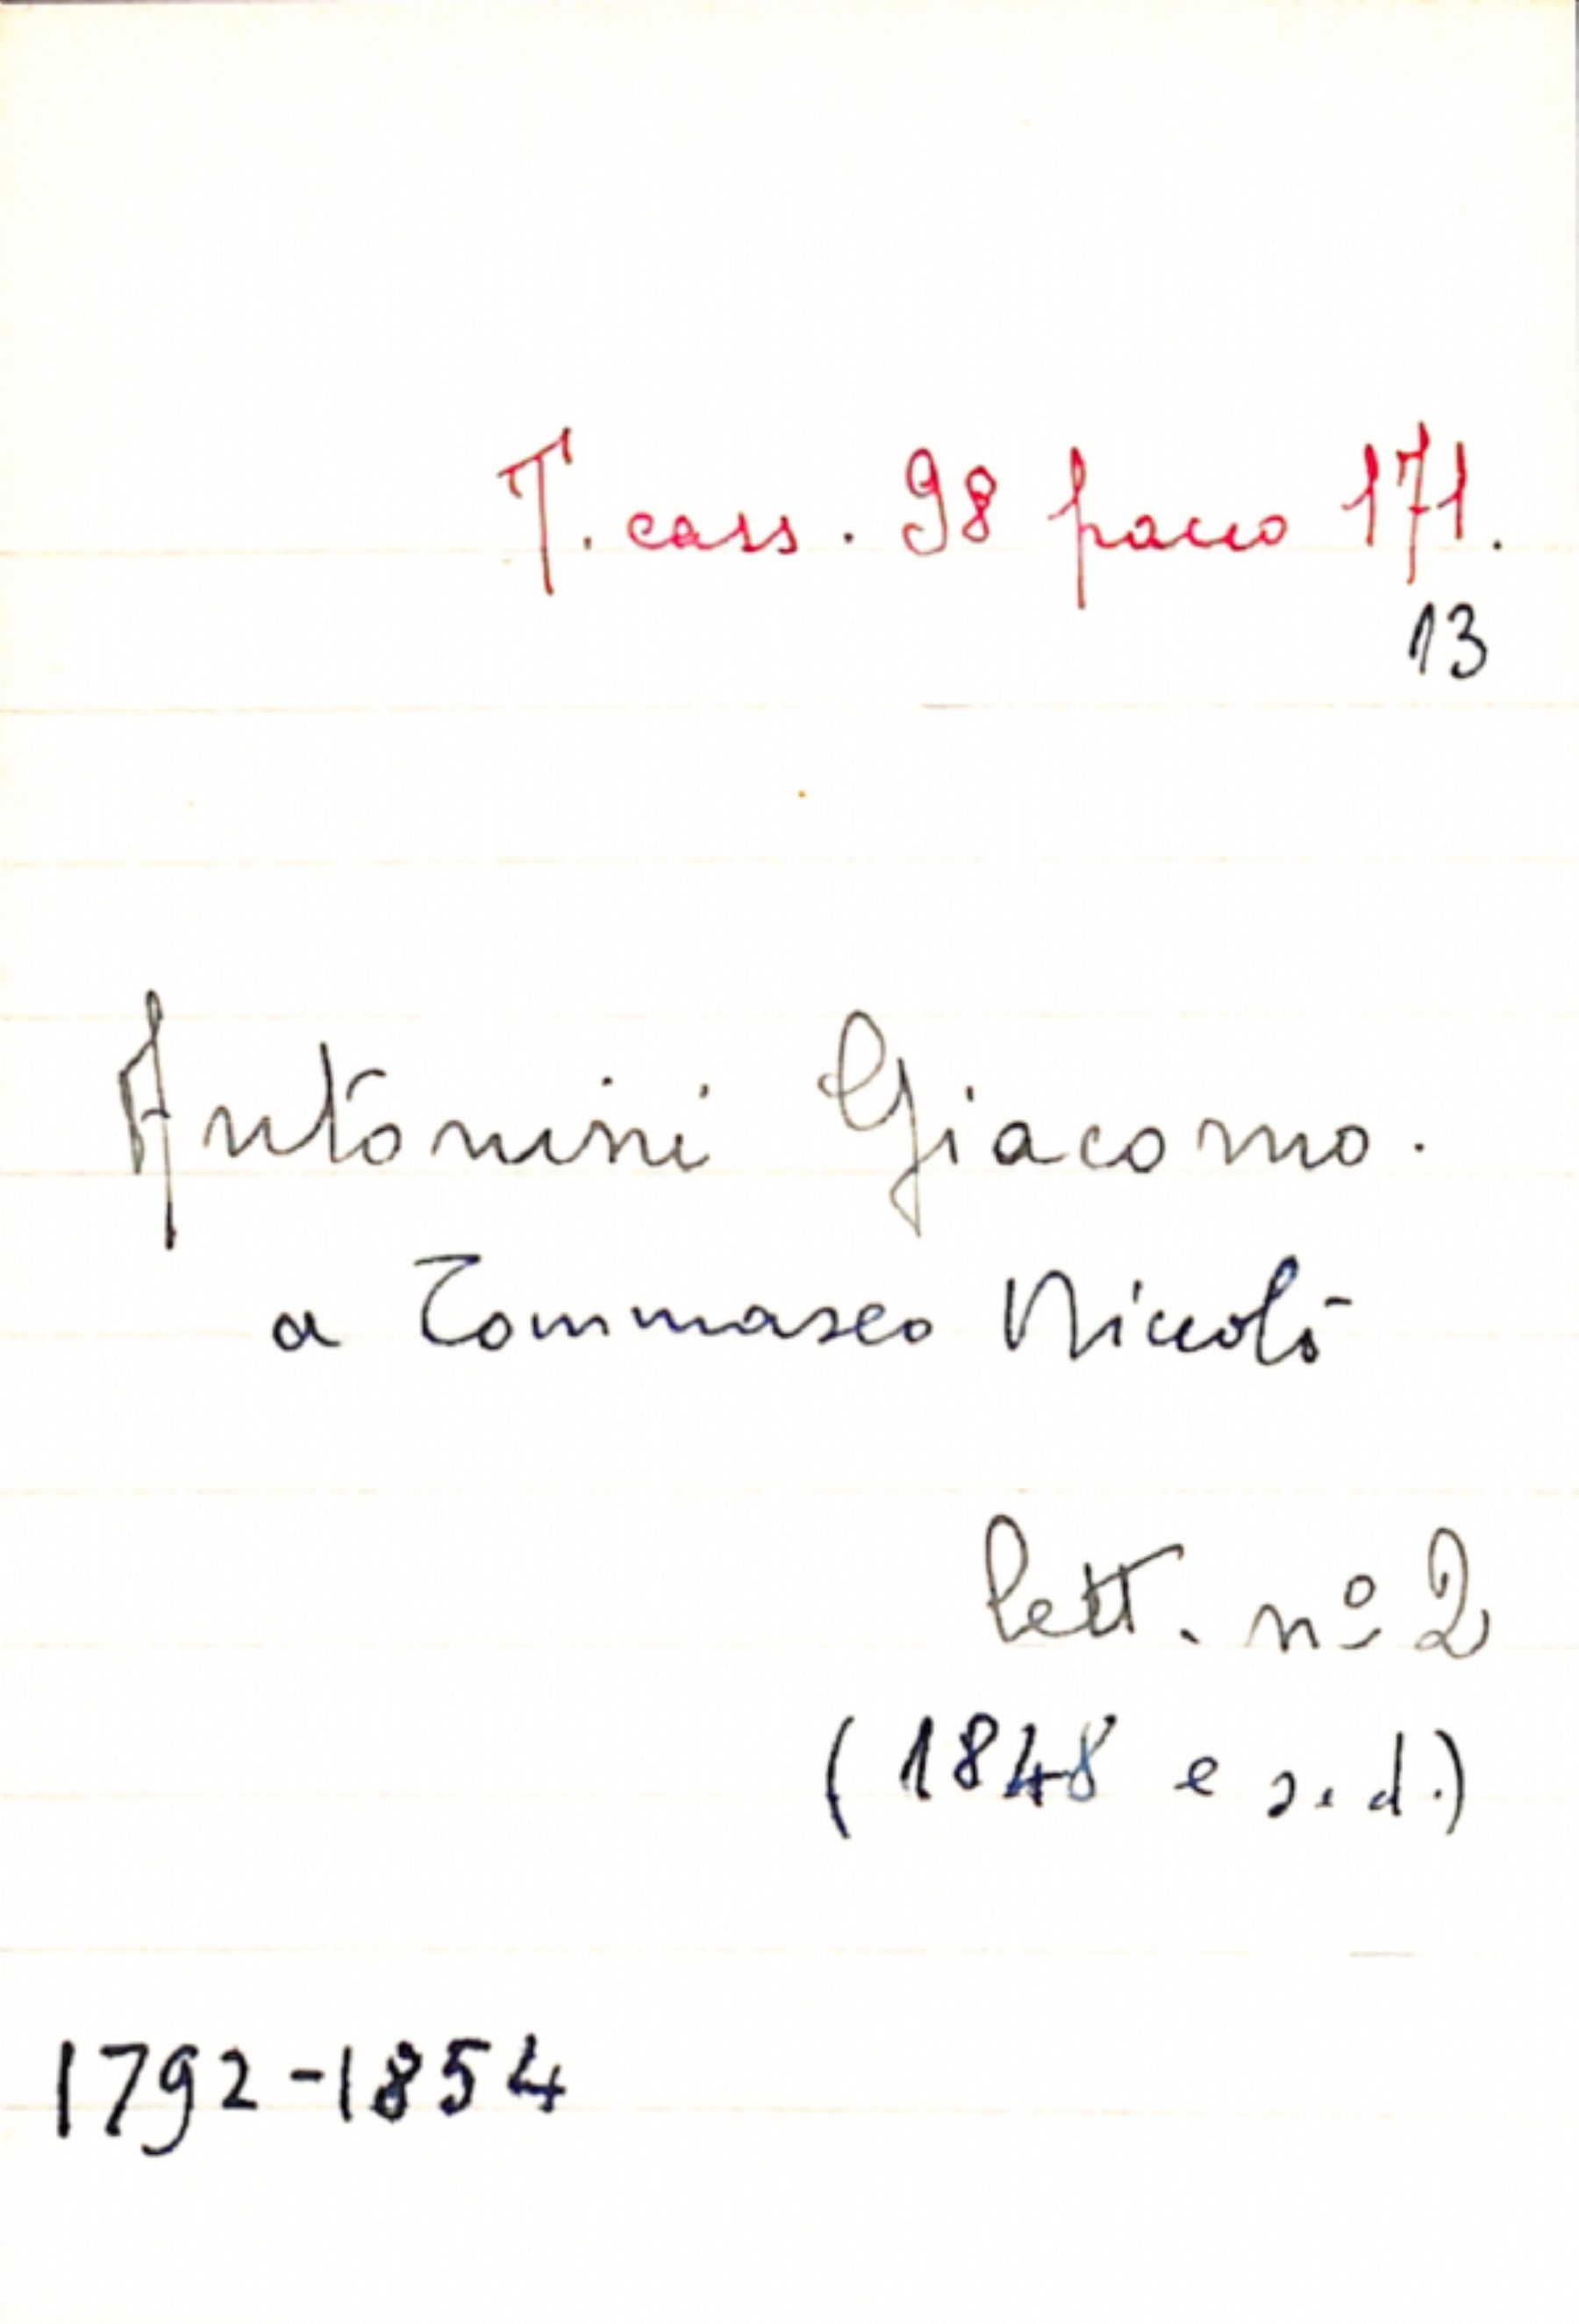 T. cass. 98 pacco 171.
13
Antonini Giacomo.
a Tommaseo Niccolò
lett. nº 2
(1848 e s.d.)
1792-1854